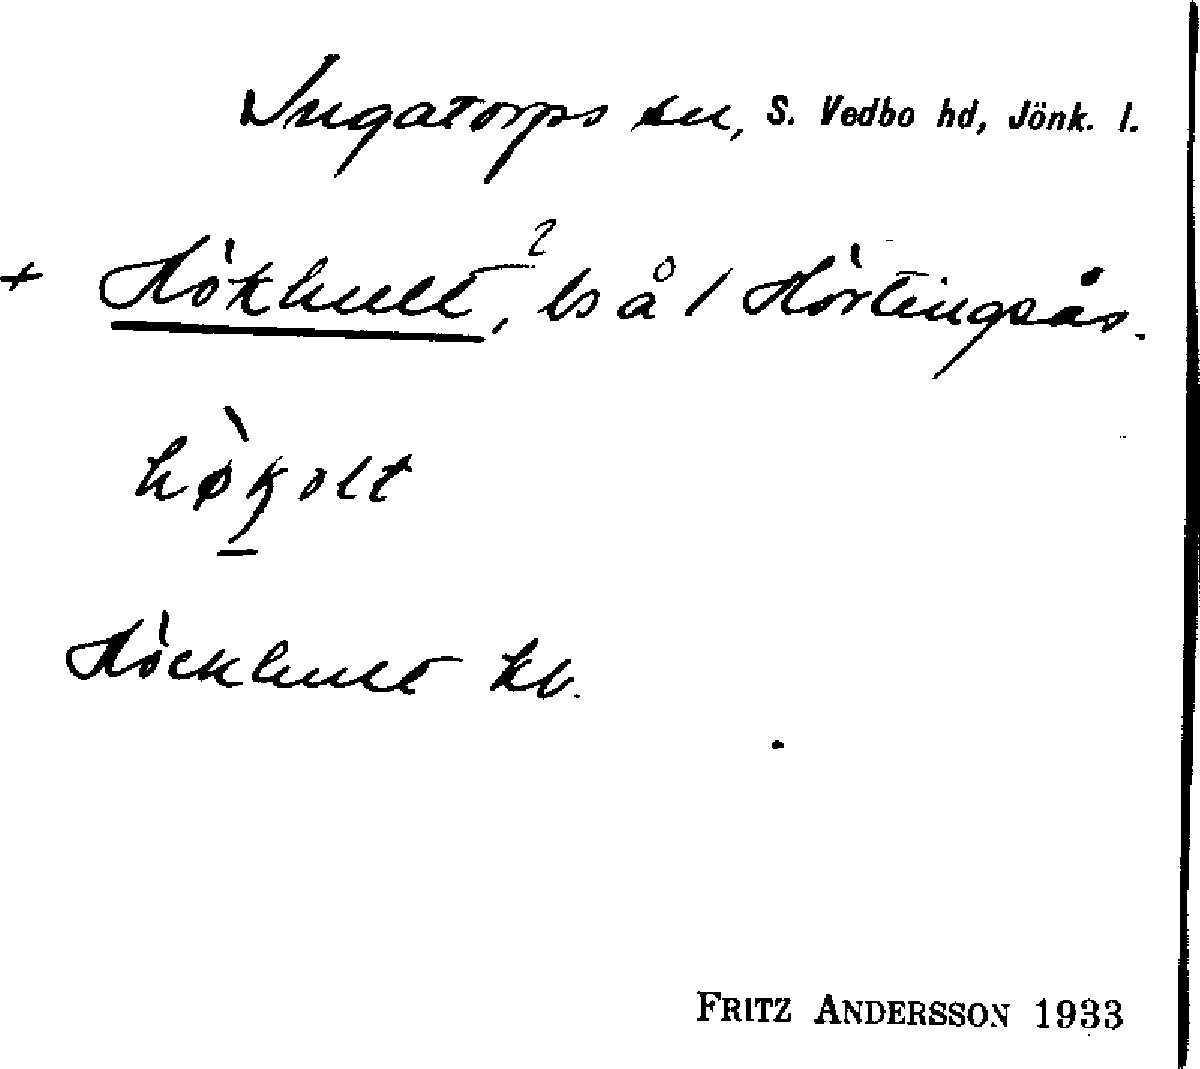 Ingatorps sn, S. Vedbo hd, Jönk. l.
+ Hökhult,² ls å 1 Hörtingsås.
hø̀kolt
Höckhult kb.
FRITZ ANDERSSON 1933